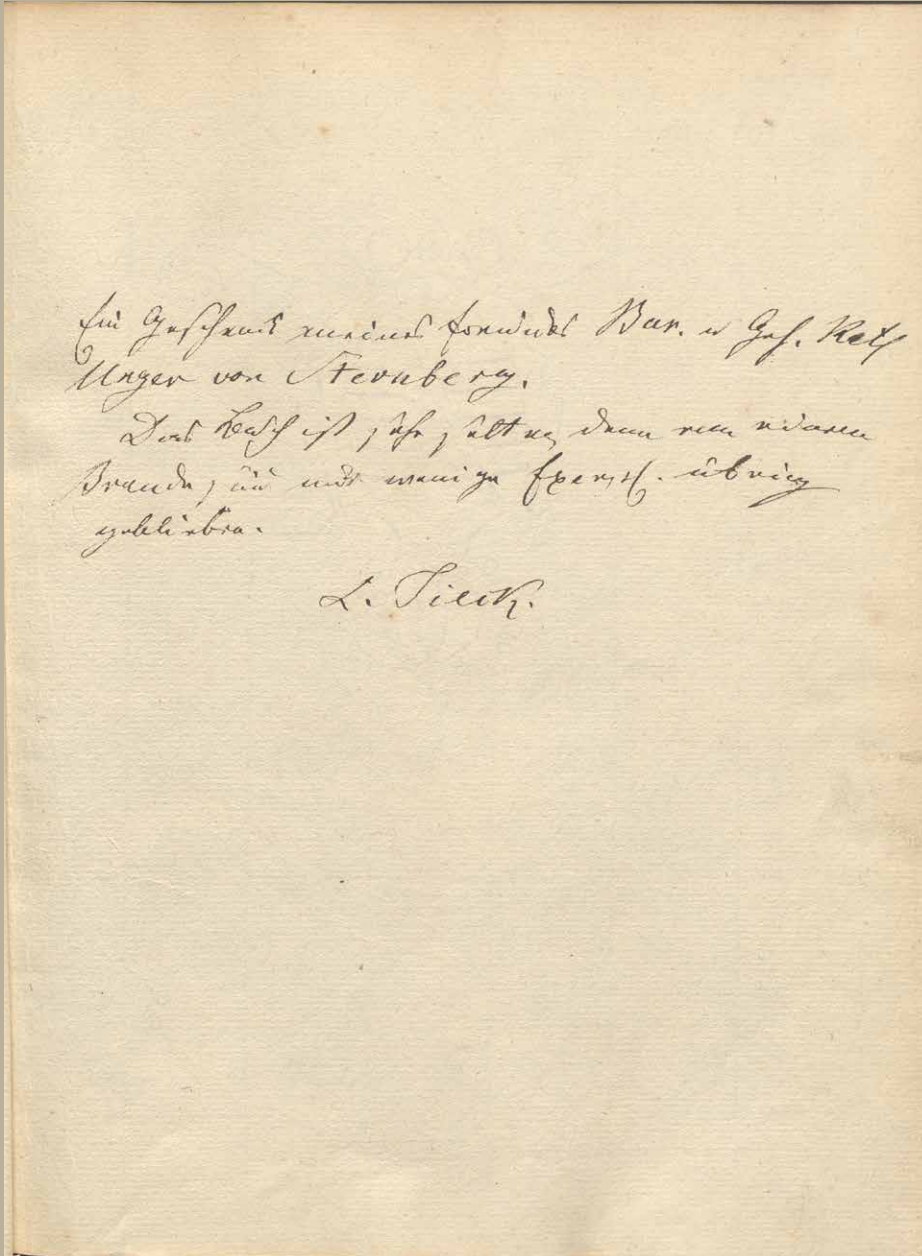 Ein Geschenk meines Freundes Bar. u Geh. Rath
Unger von Sternberg.
Das Buch ist sehr selten, denn von einem
Brande sind nur wenige Exempl. übrig
geblieben.
L. Tieck.